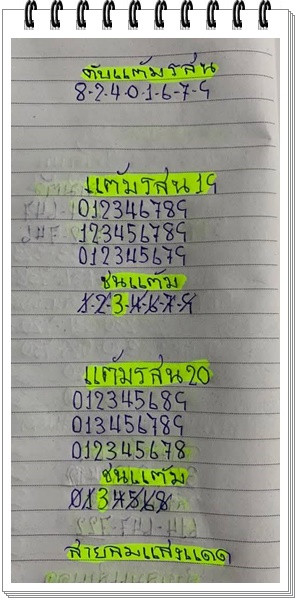 ดับแต้มรสน
8-2-4-0-1-6-7-9
แต้มรสน19
012346789
123456789
012345679
ชนแต้ม
1-2-3-4-6-7-9
แต้มรสน20
012345689
013456789
012345678
ชนแต้ม
0134568
สายลมแสงแดด